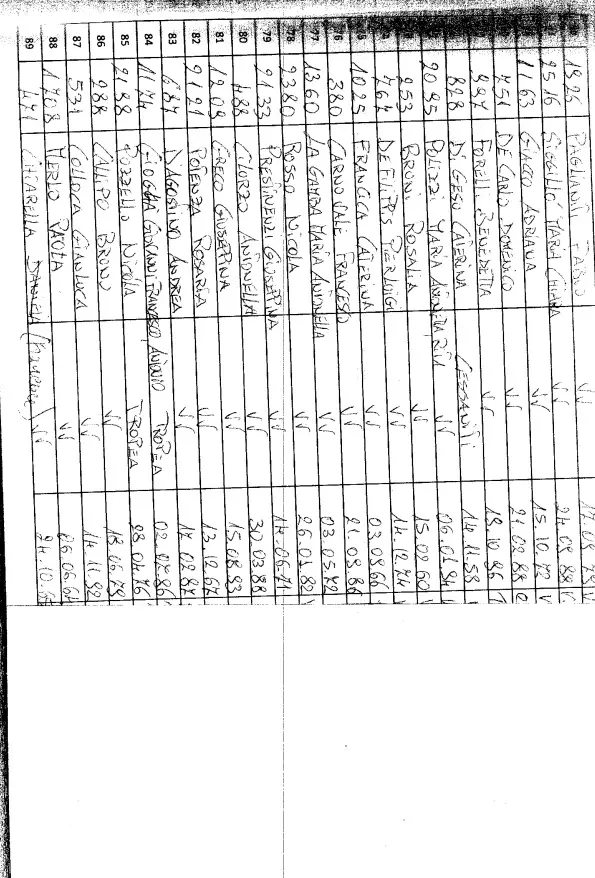 1826 PAGLIANITI FABIO VV 17.08.78 V
2516 MARIA CHIARA VV 24.08.88 V
1163 GIACCO ADRIANA VV 15.10.72 V
751 DE CARLO DOMENICO VV 21.02.88
997 BENEDETTA VV 18.10.86
828 DI GESU CATERINA CESSANITI 14.11.58
2085 POLIZZI MARIA VV 06.01.84
253 BRUNI ROSALIA VV 15.02.60
767 DE FILIPPIS PIERLUIGI VV 14.12.74
1025 FRANCICA CATERINA VV 03.09.66
76 380 CARNOVALE FRANCESCO VV 21.08.86
77 1360 LA GAMBA MARIA ANTONELLA VV 03.05.72
78 2380 ROSSO NICOLA VV 26.01.82
79 2133 PRESTINENZI GIUSEPPINA VV 14.06.71
80 488 CILURZO ANTONELLA VV 30.03.88
81 1209 GRECO GIUSEPPINA VV 15.08.83
82 2121 POTENZA ROSARIA VV 13.12.67
83 687 D'AGOSTINO ANDREA VV 17.02.87
84 1174 GIOVANNI FRANCESCO ANTONIO TROPEA 02.07.86
85 2188 NICOLA TROPEA 28.04.76
86 288 CALLIPO BRUNO VV 18.06.78
87 531 COLLOCA GIANLUCA VV 14.11.92
88 1708 MERLO PAOLA VV 06.06.64
89 471 DANIELA VV 24.10.6